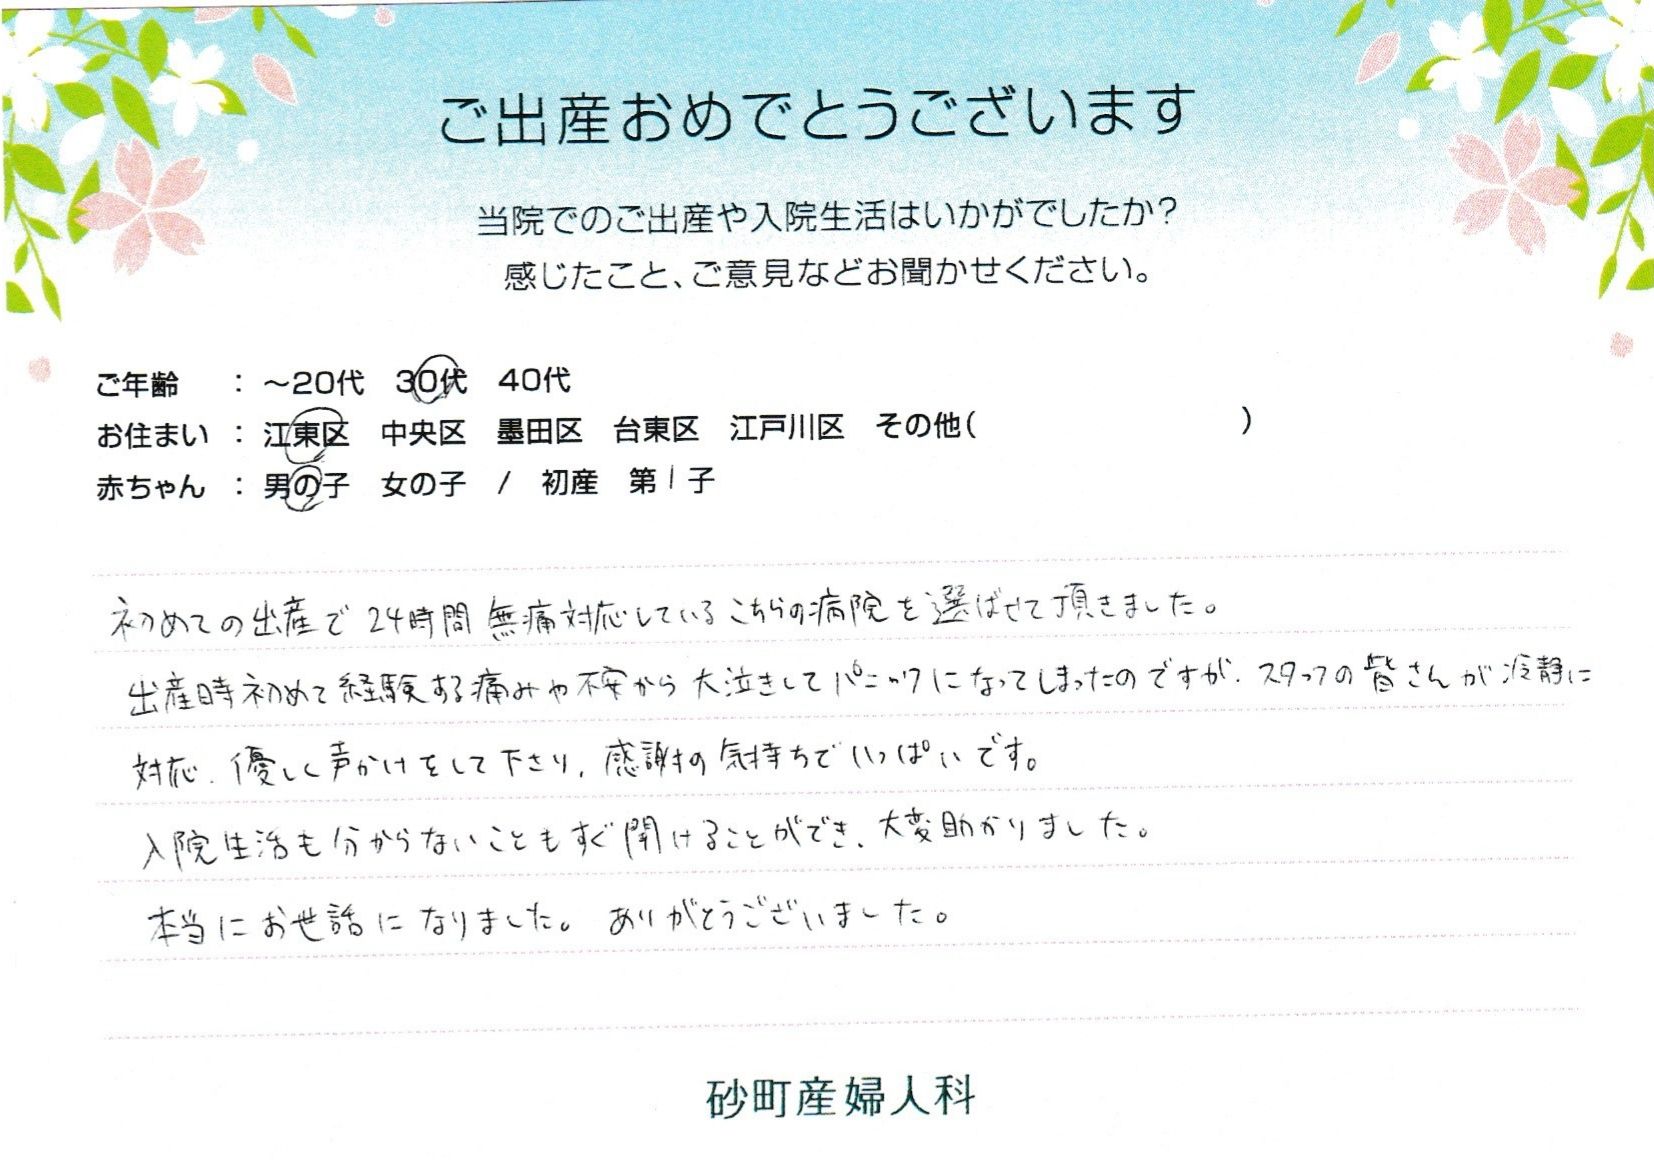 ご出産おめでとうございます
当院でのご出産や入院生活はいかがでしたか?
感じたこと、ご意見などお聞かせください。
ご年齢 : ～20代 30代 40代
お住まい : 江東区 中央区 墨田区 台東区 江戸川区 その他( )
赤ちゃん : 男の子 女の子 / 初産 第1子
初めての出産で24時間無痛対応しているこちらの病院を選ばせて頂きました。
出産時初めて経験する痛みや不安から大泣きしてパニックになってしまったのですが、スタッフの皆さんが冷静に
対応、優しく声かけをして下さり、感謝の気持ちでいっぱいです。
入院生活も分からないこともすぐ聞けることができ、大変助かりました。
本当にお世話になりました。ありがとうございました。
砂町産婦人科